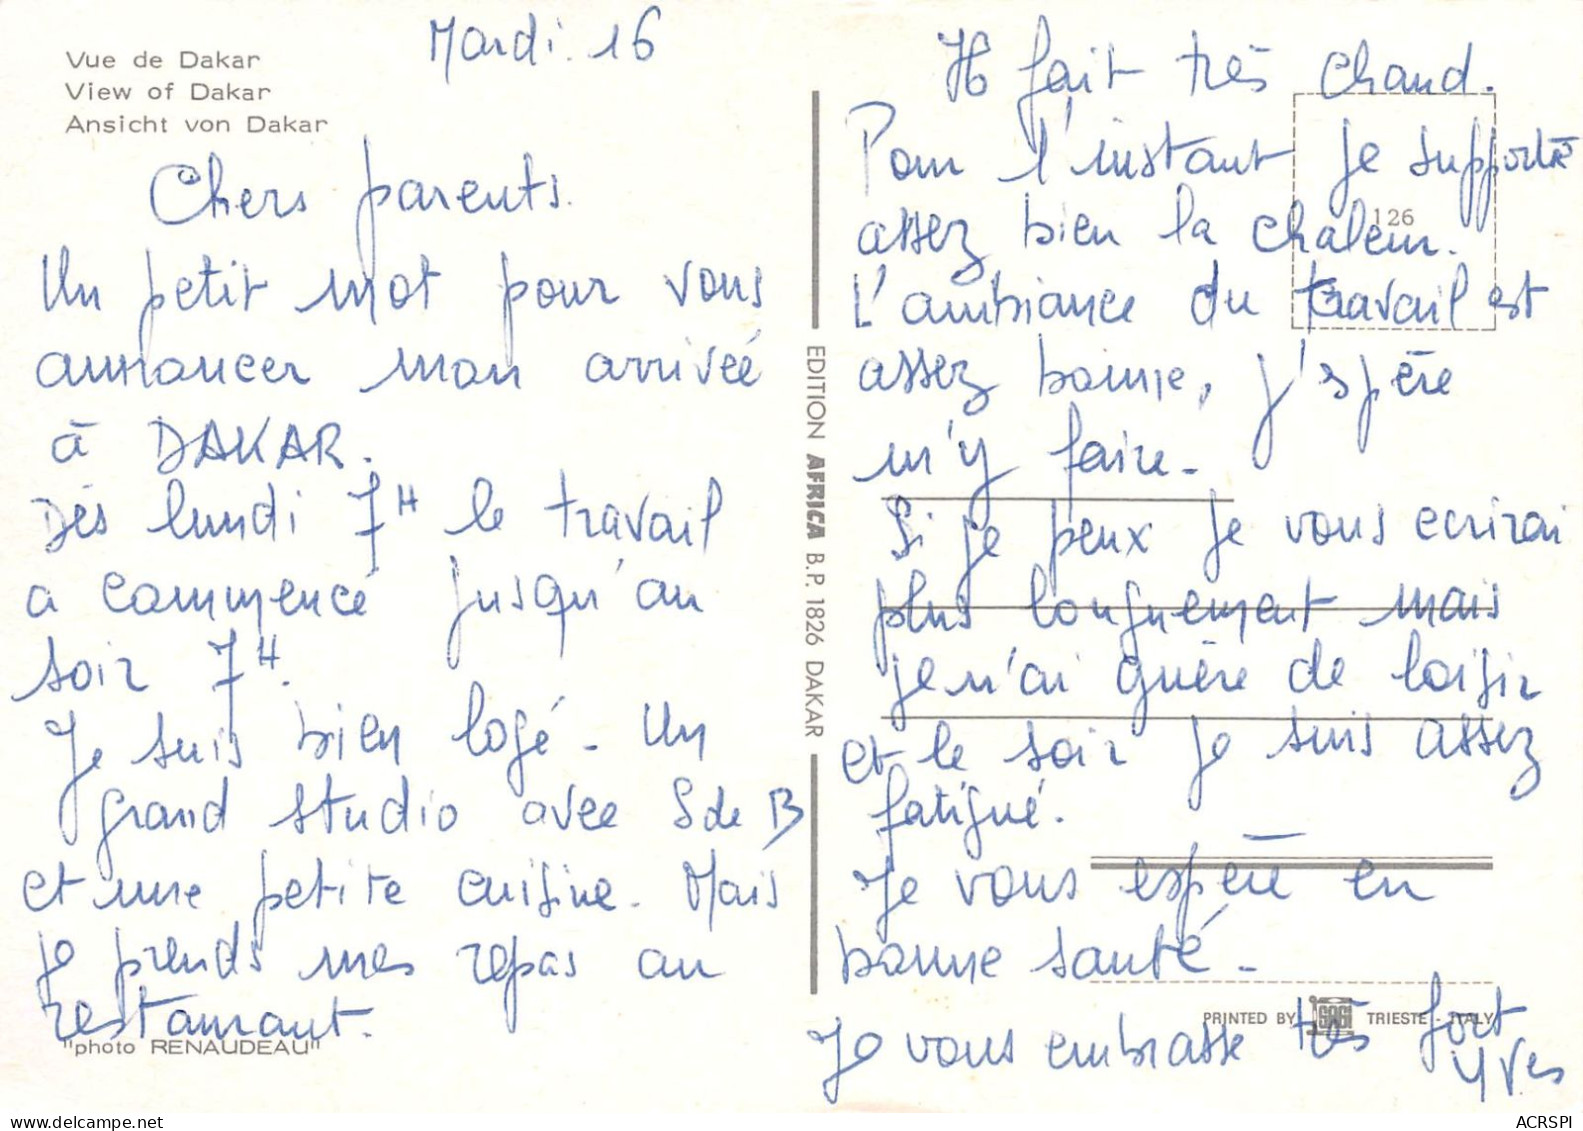 Vue de Dakar
View of Dakar
Ansicht von Dakar
Mardi. 16
Chers parents.
Un petit mot pour vous
annoncer mon arrivée
à DAKAR.
Dès lundi 7H le travail
a commencé jusqu'au
soir 7H.
Je suis bien logé - Un
grand studio avec S de B
et une petite cuisine. Mais
je prends mes repas au
restaurant.
"photo RENAUDEAU"
EDITION AFRICA B.P. 1826 DAKAR
Il fait très chaud.
Pour l'instant je supporte
assez bien la chaleur.
126
L'ambiance du travail est
assez bonne, j'spère
m'y faire -
Si je peux je vous ecrirai
plus longuement mais
je n'ai guère de loisir
et le soir je suis assez
fatigué.
Je vous espère en
bonne santé -
PRINTED BY SAGI TRIESTE - ITALY
Je vous embrasse très fort
Yves
ACRSPI